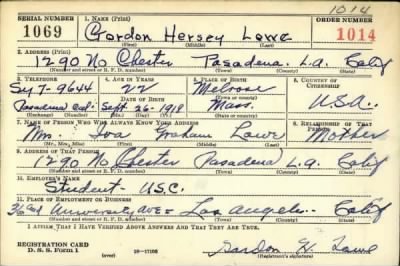 1014
SERIAL NUMBER 1. NAME (Print) ORDER NUMBER
1069 Gordon Hersey Lowe 1014
(First) (Middle) (Last)
2. ADDRESS (Print)
1290 No Chester Pasadena. L.A. Calif
(Number and street or R. F. D. number) (Town) (County) (State)
3. TELEPHONE 4. AGE IN YEARS 5. PLACE OF BIRTH 6. COUNTRY OF CITIZENSHIP
Sy 7-9644 22 Melrose
DATE OF BIRTH (Town or county)
Pasadena Cal. Sept 26-1918 Mass. U.S.A.
(Exchange) (Number) (Mo.) (Day) (Yr.) (State or country)
7. NAME OF PERSON WHO WILL ALWAYS KNOW YOUR ADDRESS 8. RELATIONSHIP OF THAT PERSON
Mrs. Graham Lowe Mother
(Mr., Mrs., Miss) (First) (Middle) (Last)
9. ADDRESS OF THAT PERSON
1290 No Chester Pasadena L.A. Calif
(Number and street or R. F. D. number) (Town) (County) (State)
10. EMPLOYER'S NAME
Student - U.S.C.
11. PLACE OF EMPLOYMENT OR BUSINESS
University Ave Los Angeles Calif
(Number and street or R. F. D. number) (Town) (County) (State)
I AFFIRM THAT I HAVE VERIFIED ABOVE ANSWERS AND THAT THEY ARE TRUE.
REGISTRATION CARD
D. S. S. Form 1 (over) 16-17105 Gordon H. Lowe
(Registrant's signature)